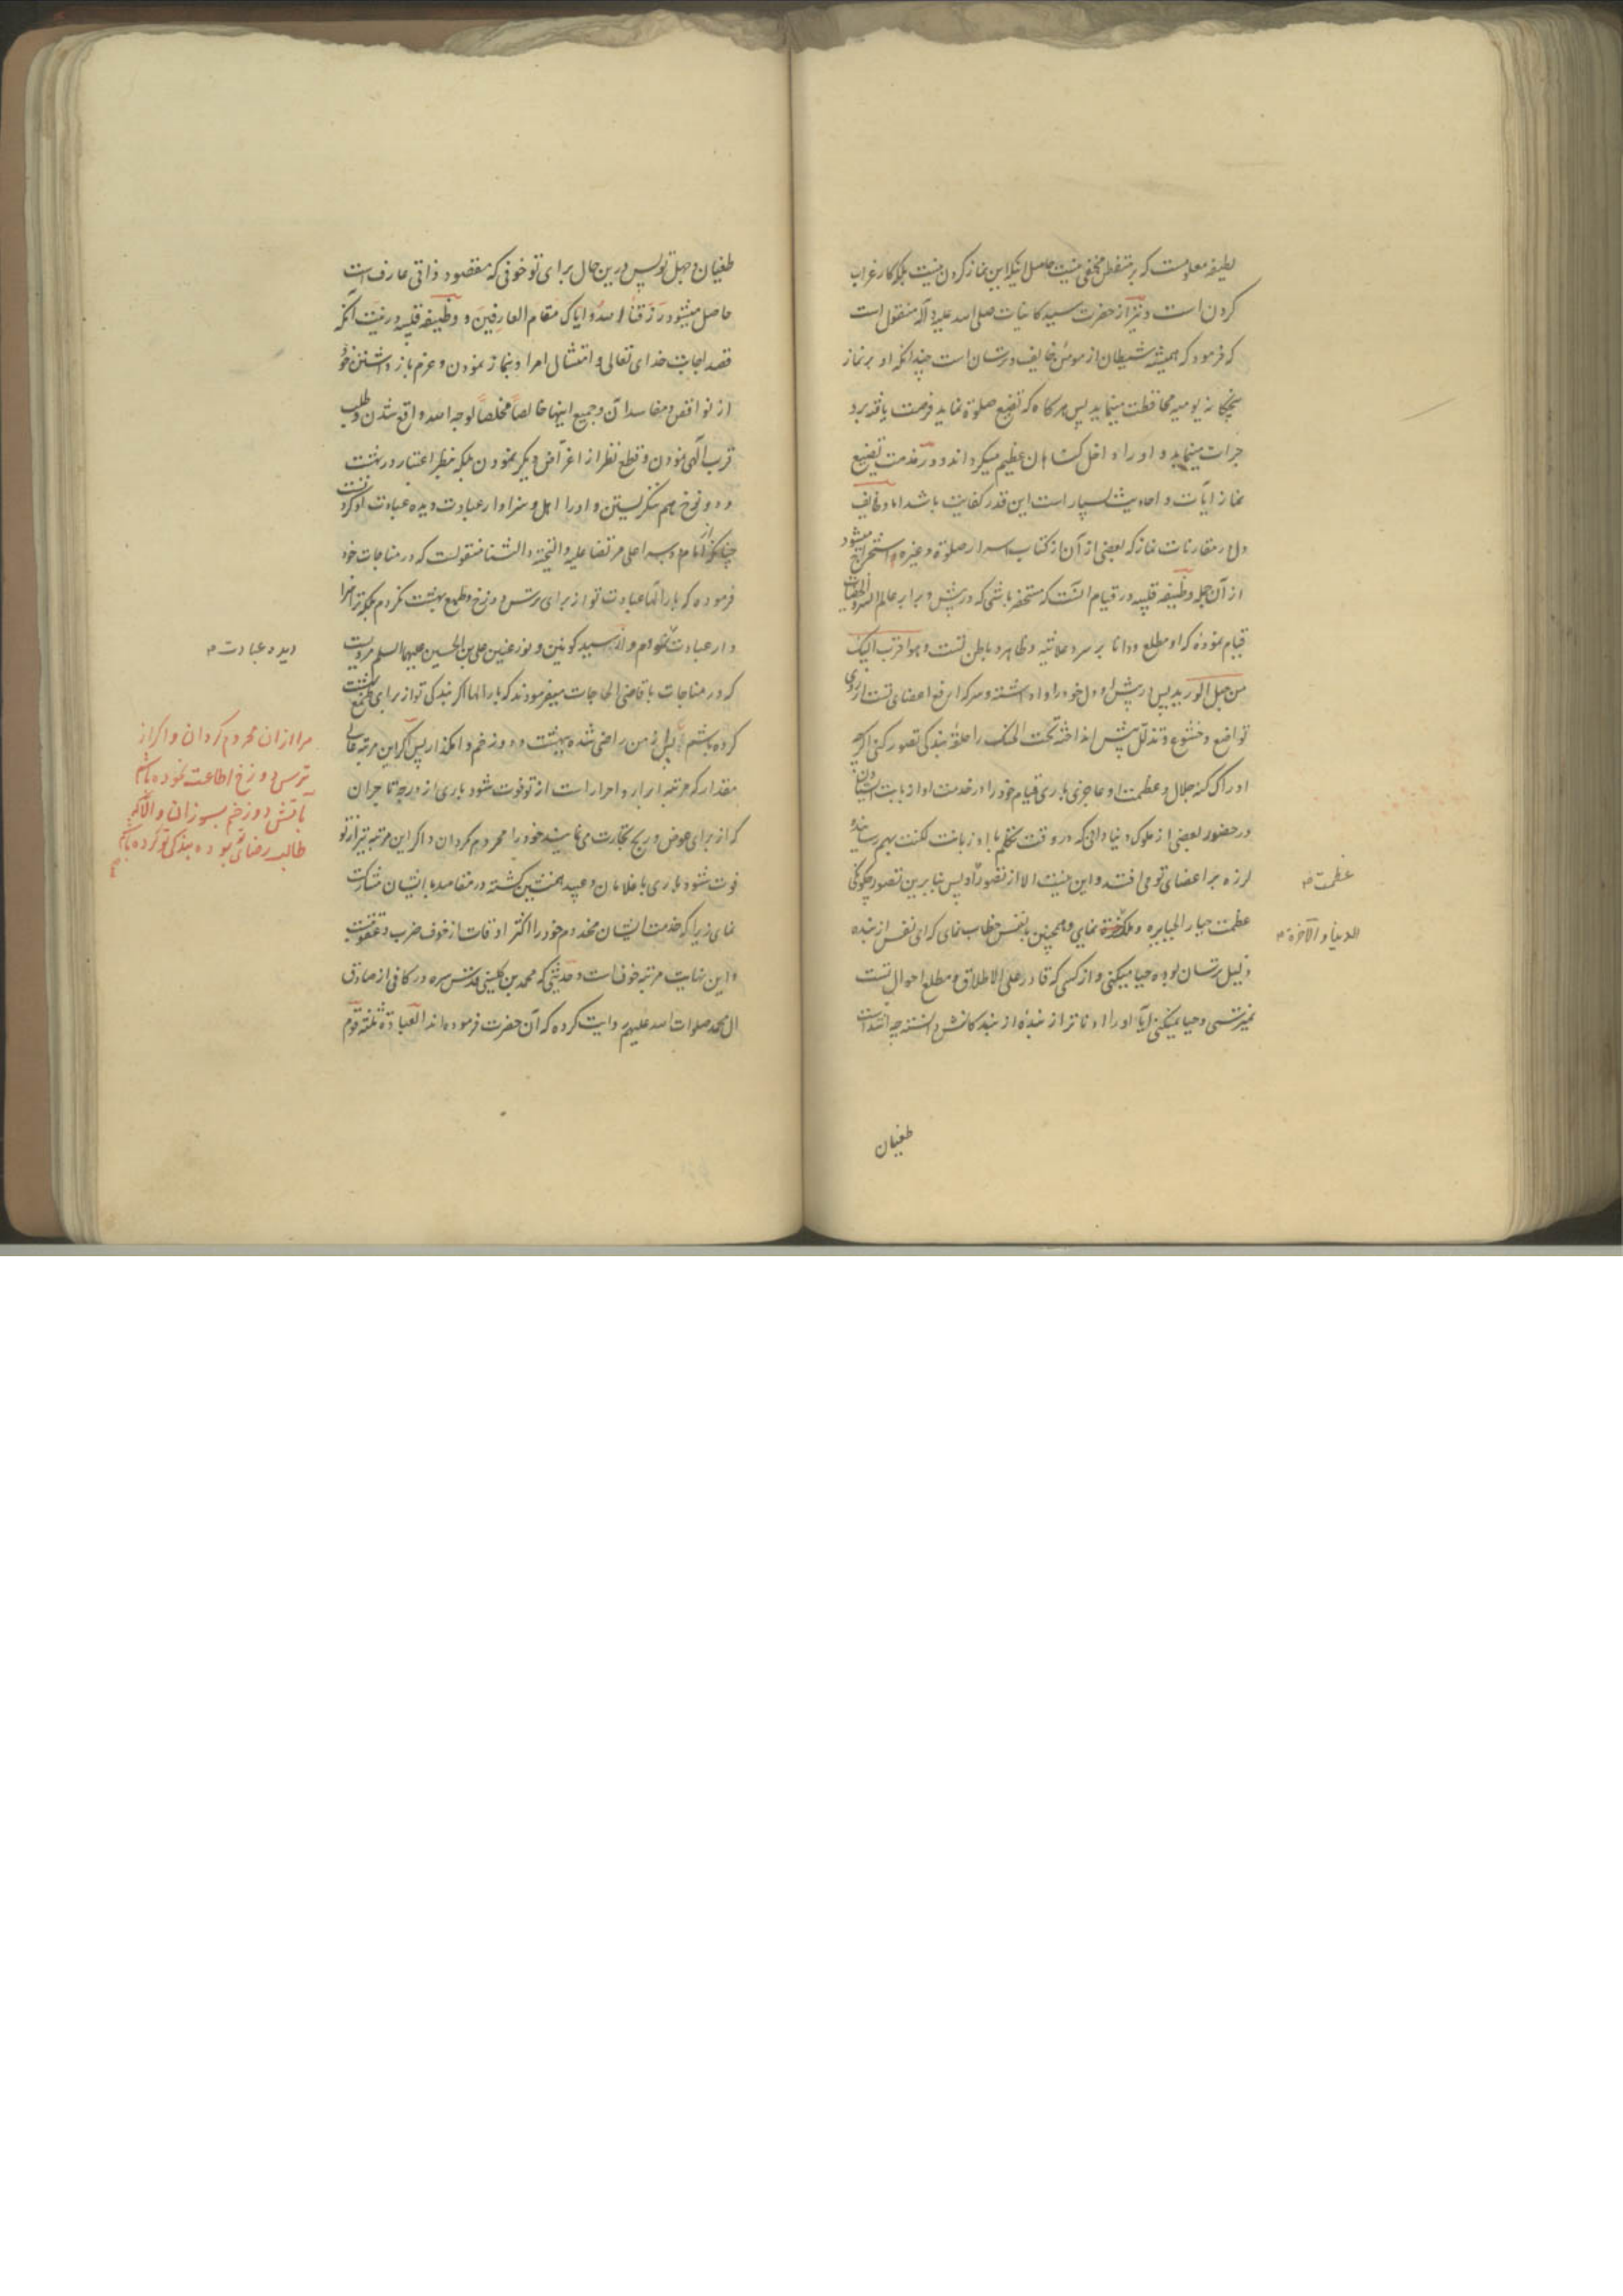 لطیفه معلومست که بر متفطن مخفی نیست حاصل آنکه این نماز کردن نیست بلکه کار غراب
کردن است و نیز از حضرت سید کاینات صلی الله علیه و آله منقول است
که فرمود که همیشه شیطان از مومن خایف و ترسان است چندانکه او بر نماز
پنجگانه یومیه محافظت مینماید پس هر گاه که تضیع صلوة نماید فرصت یافته برو
جرات مینماید و او را داخل گناهان عظیم میگرداند و در مذمت تضیع
نماز آیات و احادیث بسیار است این قدر کفایت باشد اما وظایف
دل در مقارنات نماز که بعضی از آن از کتاب اسرار صلوة و غیره استخراج میشود
از آن جمله وظیفه قلبیه در قیام آنست که مستحضر باشی که در پیش و برابر عالم السر و الخفیات
قیام نموده که او مطلع و دانا بر سر و علانیه و ظاهر و باطن تست و هو اقرب الیک
من حبل الورید پس در پیش او دل خود را و اداشته و سر که ارفع اعضای تست از روی
تواضع و خشوع و تذلل پیش انداخته تحت الحنک را حلقه بندگی تصور کنی اگر چه
ادراک کنه جلال و عظمت او عاجزی باری قیام خود را در خدمت او از بابت ایستادن
در حضور بعضی از ملوک دنیا دانی که در وقت تکلم با او زبانت لکنت بهم رسانیده
لرزه بر اعضای تو می افتد و این نیست الا از تصور او پس بنابرین تصور چگونگی
عظمت جبار الجبابره و ملک نمایی و همچنین بنفس خطاب نمای که ای نفس از بنده
ذلیل ترسان بوده حیا میکنی و از کسی که قادر علی الاطلاق و مطلع احوال تست
نمیترسی و حیا نمیکنی آیا او را ادناتر از بنده از بندگانش دانسته چه اشد است
عظمت صح
الدنیا و الآخرة صح
طغیان
طغیان و جهل تو پس درین حال برای تو خوفی که مقصود ذاتی عارف است
حاصل میشود رزقنا الله و ایاک مقام العارفین و وظیفه قلبیه در نیت آنکه
قصد اجابت خدای تعالی و امتثال امر او بنماز نمودن و عزم باز داشتن خود
از نواقض و مفاسد آن و جمیع اینها خالصاً مخلصاً لوجه الله واقع شدن و طلب
قرب الهی نمودن و قطع نظر از اغراض دیگر نمودن بلکه بنظر اعتبار در بهشت
و دوزخ هم ننگریستن و او را اهل و سزاوار عبادت دیده عبادت او کردن
چنانکه از امام اوصیا علی مرتضا علیه التحیة و الثنا منقولست که در مناجات خود
فرموده که بار الها عبادت تو از برای ترس دوزخ و طمع بهشت نکردم بلکه ترا سزا
وار عبادت نمودم و از سید کونین و نور عینین علی بن الحسین علیهما السلم مرویست
که در مناجات با قاضی الحاجات میفرمودند که بار الها اگر بندگی تو از برای طمع بهشت
کرده باشم از من راضی شده ببهشت و دوزخم وامگذار پس اگر این مرتبه عالی
مقدار که مرتبه ابرار و احرار است از تو فوت شود باری از درجه تاجران
که از برای عوض و ربح تجارت می نمایند خود را محروم مگردان و اگر این مرتبه نیز از تو
فوت شود باری با غلامان و عبید همنشین گشته در مقاصد با ایشان مشارکت
نمای زیرا که خدمت ایشان مخدوم خود را اکثر اوقات از خوف ضرب و عقوبتست
و این نهایت مرتبه خوف است و حدیثی که محمد بن کلینی قدس سره در کافی از صادق
ال محمد صلوات الله علیهم روایت کرده که آن حضرت فرموده اند العبادة ثلثة قوم
دیده عبادت صح
مرا از ان محروم گردان و اگر از
ترس دوزخ اطاعت نموده باشم
بآتش دوزخم بسوزان و اگر
طالب رضای تو بوده بندگی تو کرده باشم
صح